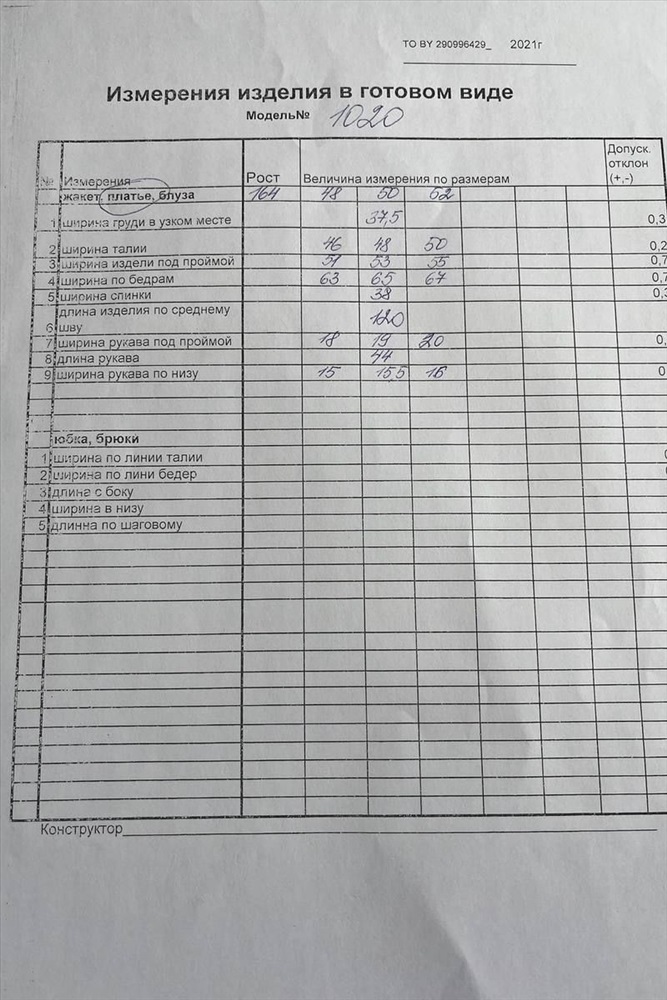 ТО BY 290996429_ 2021г
Измерения изделия в готовом виде
Модель№ 1020
№ Измерения Рост Величина измерения по размерам Допуск. отклон (+,-)
жакет, платье, блуза 164 48 50 52
1 ширина груди в узком месте 37,5 0,3
2 ширина талии 46 48 50 0,2
3 ширина издели под проймой 51 53 55 0,7
4 ширина по бедрам 63 65 67 0,7
5 ширина спинки 38 0,3
6 длина изделия по среднему шву 120
7 ширина рукава под проймой 18 19 20 0,
8 длина рукава 44
9 ширина рукава по низу 15 15,5 16 0
юбка, брюки
1 ширина по линии талии
2 ширина по лини бедер
3 длина с боку
4 ширина в низу
5 длинна по шаговому
Конструктор